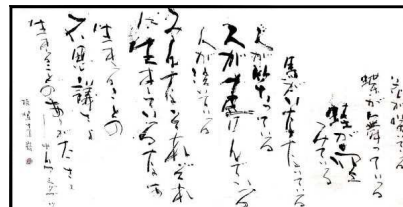 花が咲いている
蝶が舞っている
が
ている
馬がいなないている
犬が っている
人が けんでいる
人が泣いている
みんなそれぞれ
に生きているなあ
生きることの
不思議さと
生きることのありがたさと